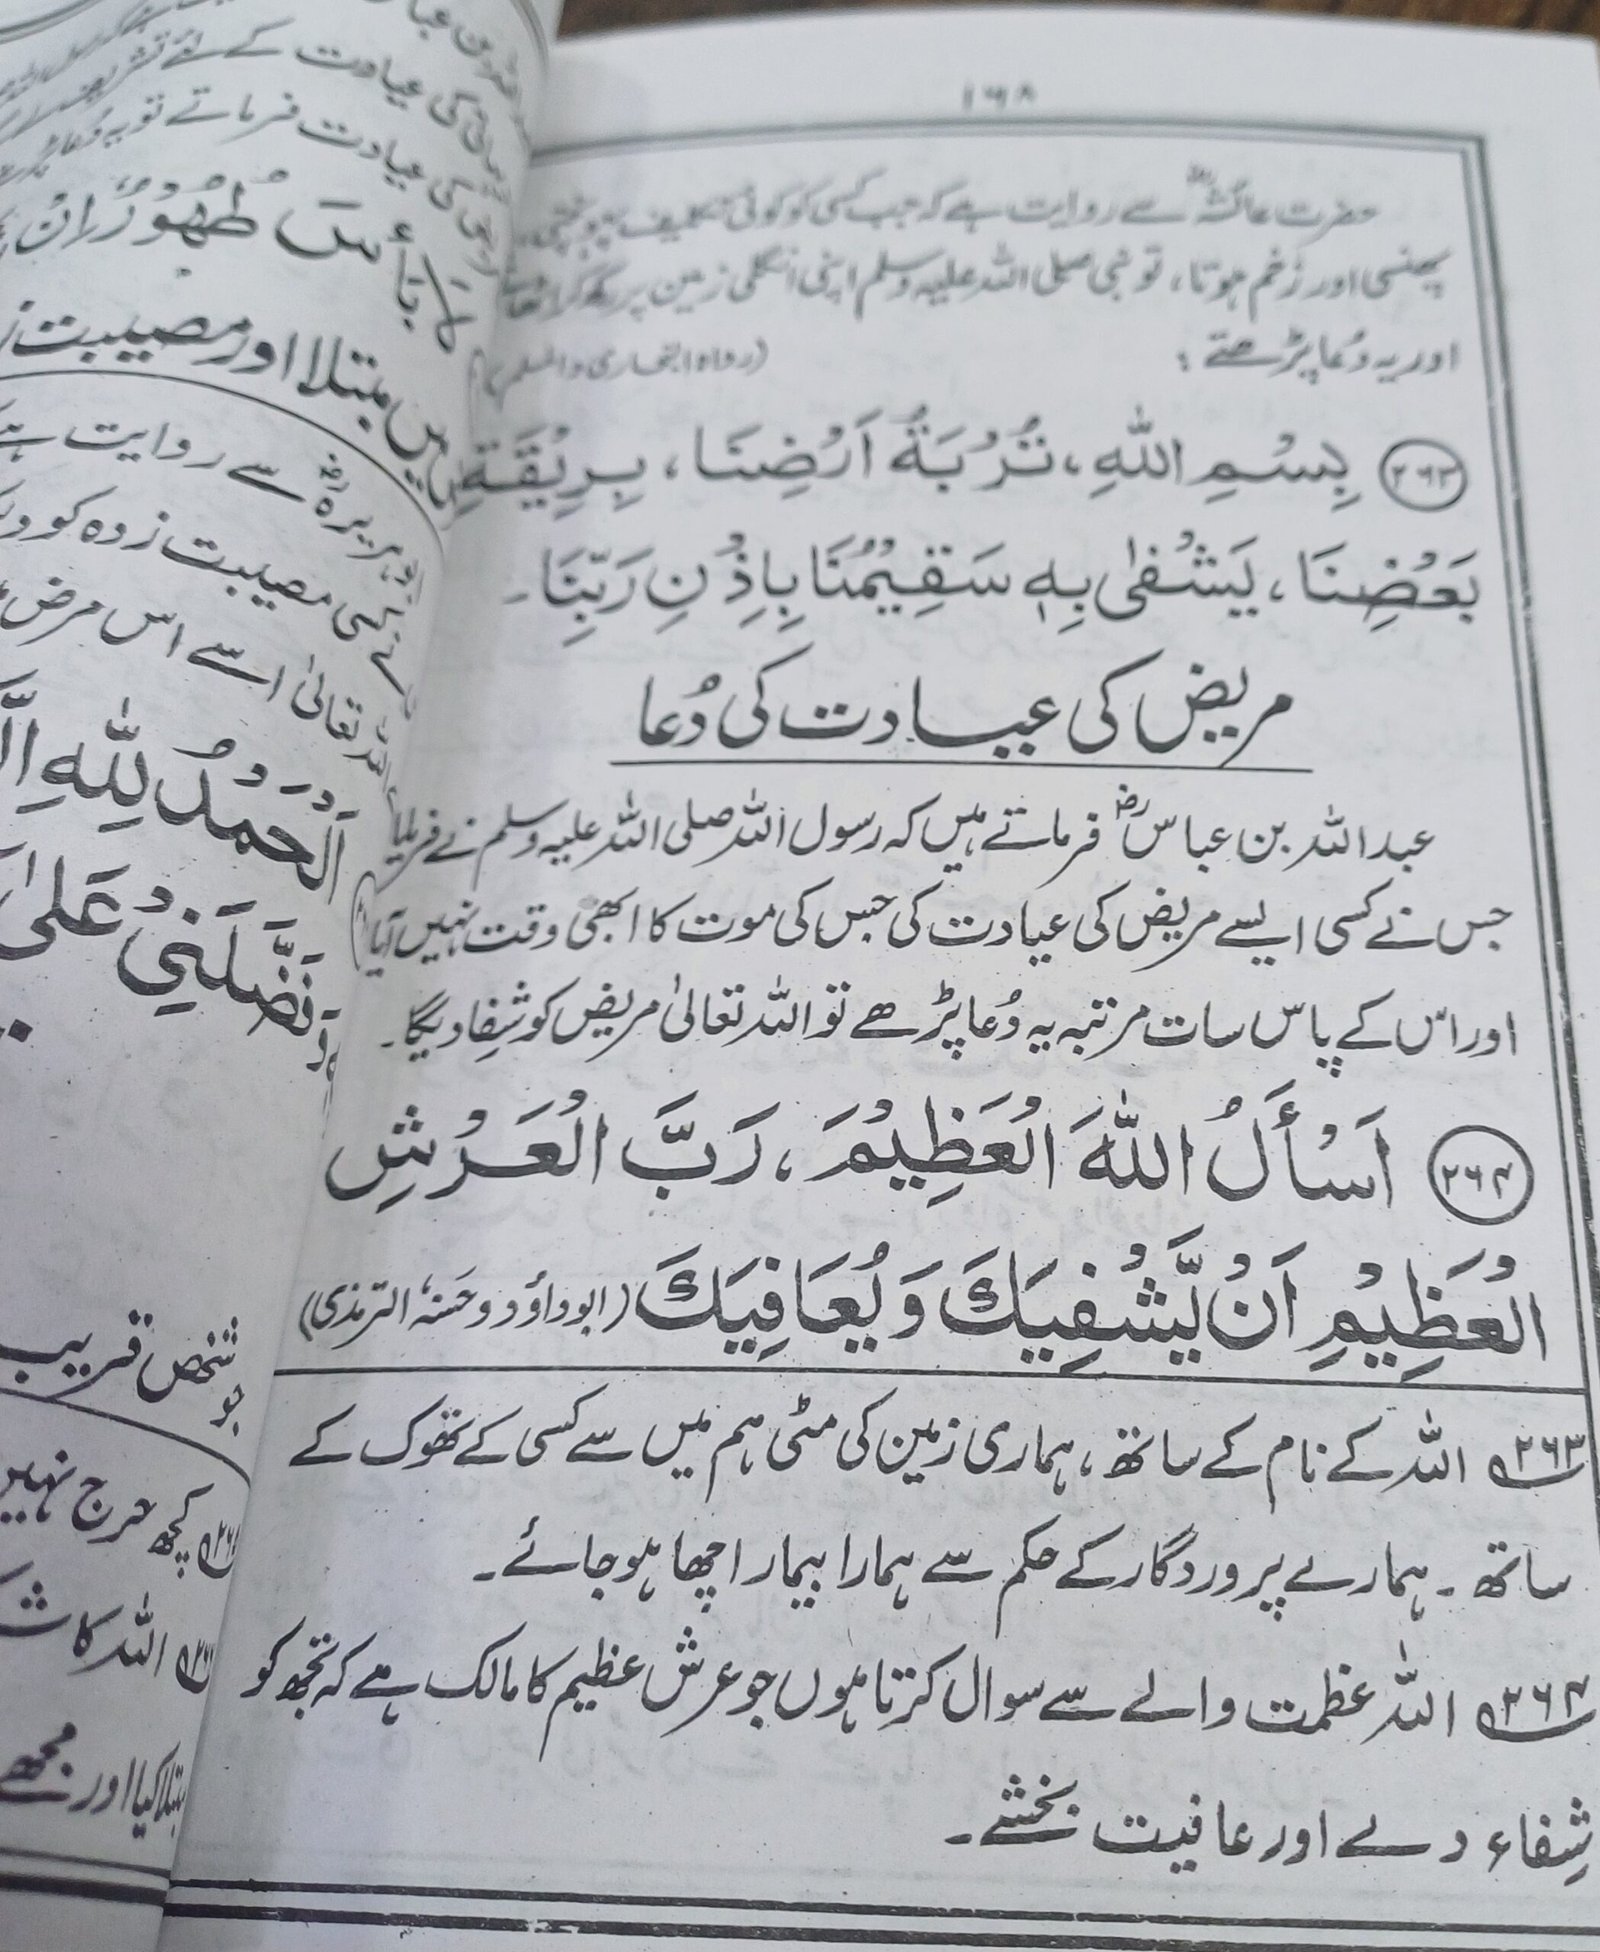 ۱۶۸
حضرت عائشہؓ سے روایت ہے کہ جب کسی کو کوئی تکلیف پہونچتی،
پھنسی اور زخم ہوتا، تو نبی صلی اللہ علیہ وسلم اپنی انگلی زمین پر رکھ کر اٹھاتے
اور یہ دُعا پڑھتے : (رواہ البخاری والمسلم)
۲۶۳ بِسْمِ اللّٰهِ، تُرْبَةُ اَرْضِنَا، بِرِيْقَةِ
بَعْضِنَا، يَشْفٰى بِهٖ سَقِيْمُنَا بِاِذْنِ رَبِّنَا۔
مریض کی عیادت کی دُعا
عبداللہ بن عباسؓ فرماتے ہیں کہ رسول اللہ صلی اللہ علیہ وسلم نے فرمایا
جس نے کسی ایسے مریض کی عیادت کی جس کی موت کا ابھی وقت نہیں آیا
اور اس کے پاس سات مرتبہ یہ دُعا پڑھے تو اللہ تعالیٰ مریض کو شِفا دیگا۔
۲۶۴ اَسْأَلُ اللّٰهَ الْعَظِيْمَ، رَبَّ الْعَرْشِ
الْعَظِيْمِ اَنْ يَّشْفِيَكَ وَيُعَافِيَكَ (ابوداؤد وحسنہٗ الترمذی)
۲۶۳ اللہ کے نام کے ساتھ، ہماری زمین کی مٹی ہم میں سے کسی کے تھوک کے
ساتھ۔ ہمارے پروردگار کے حکم سے ہمارا بیمار اچھا ہو جائے۔
۲۶۴ اللہ عظمت والے سے سوال کرتا ہوں جو عرش عظیم کا مالک ہے کہ تجھ کو
شِفاء دے اور عافیت بخشے۔
کی عیادت کے لئے
کی عیادت فرماتے تو یہ دُعا
لَا بَأْسَ طَهُوْرٌ اِنْ
میں مبتلا اور مصیبت
سے روایت ہے
کسی مصیبت زدہ کو
اللہ تعالیٰ اسے اس مرض
اَلْحَمْدُ لِلّٰهِ
وَفَضَّلَنِيْ عَلٰى
جو شخص قریب
کچھ حرج نہیں
اللہ کا
مبتلا کیا اور مجھے